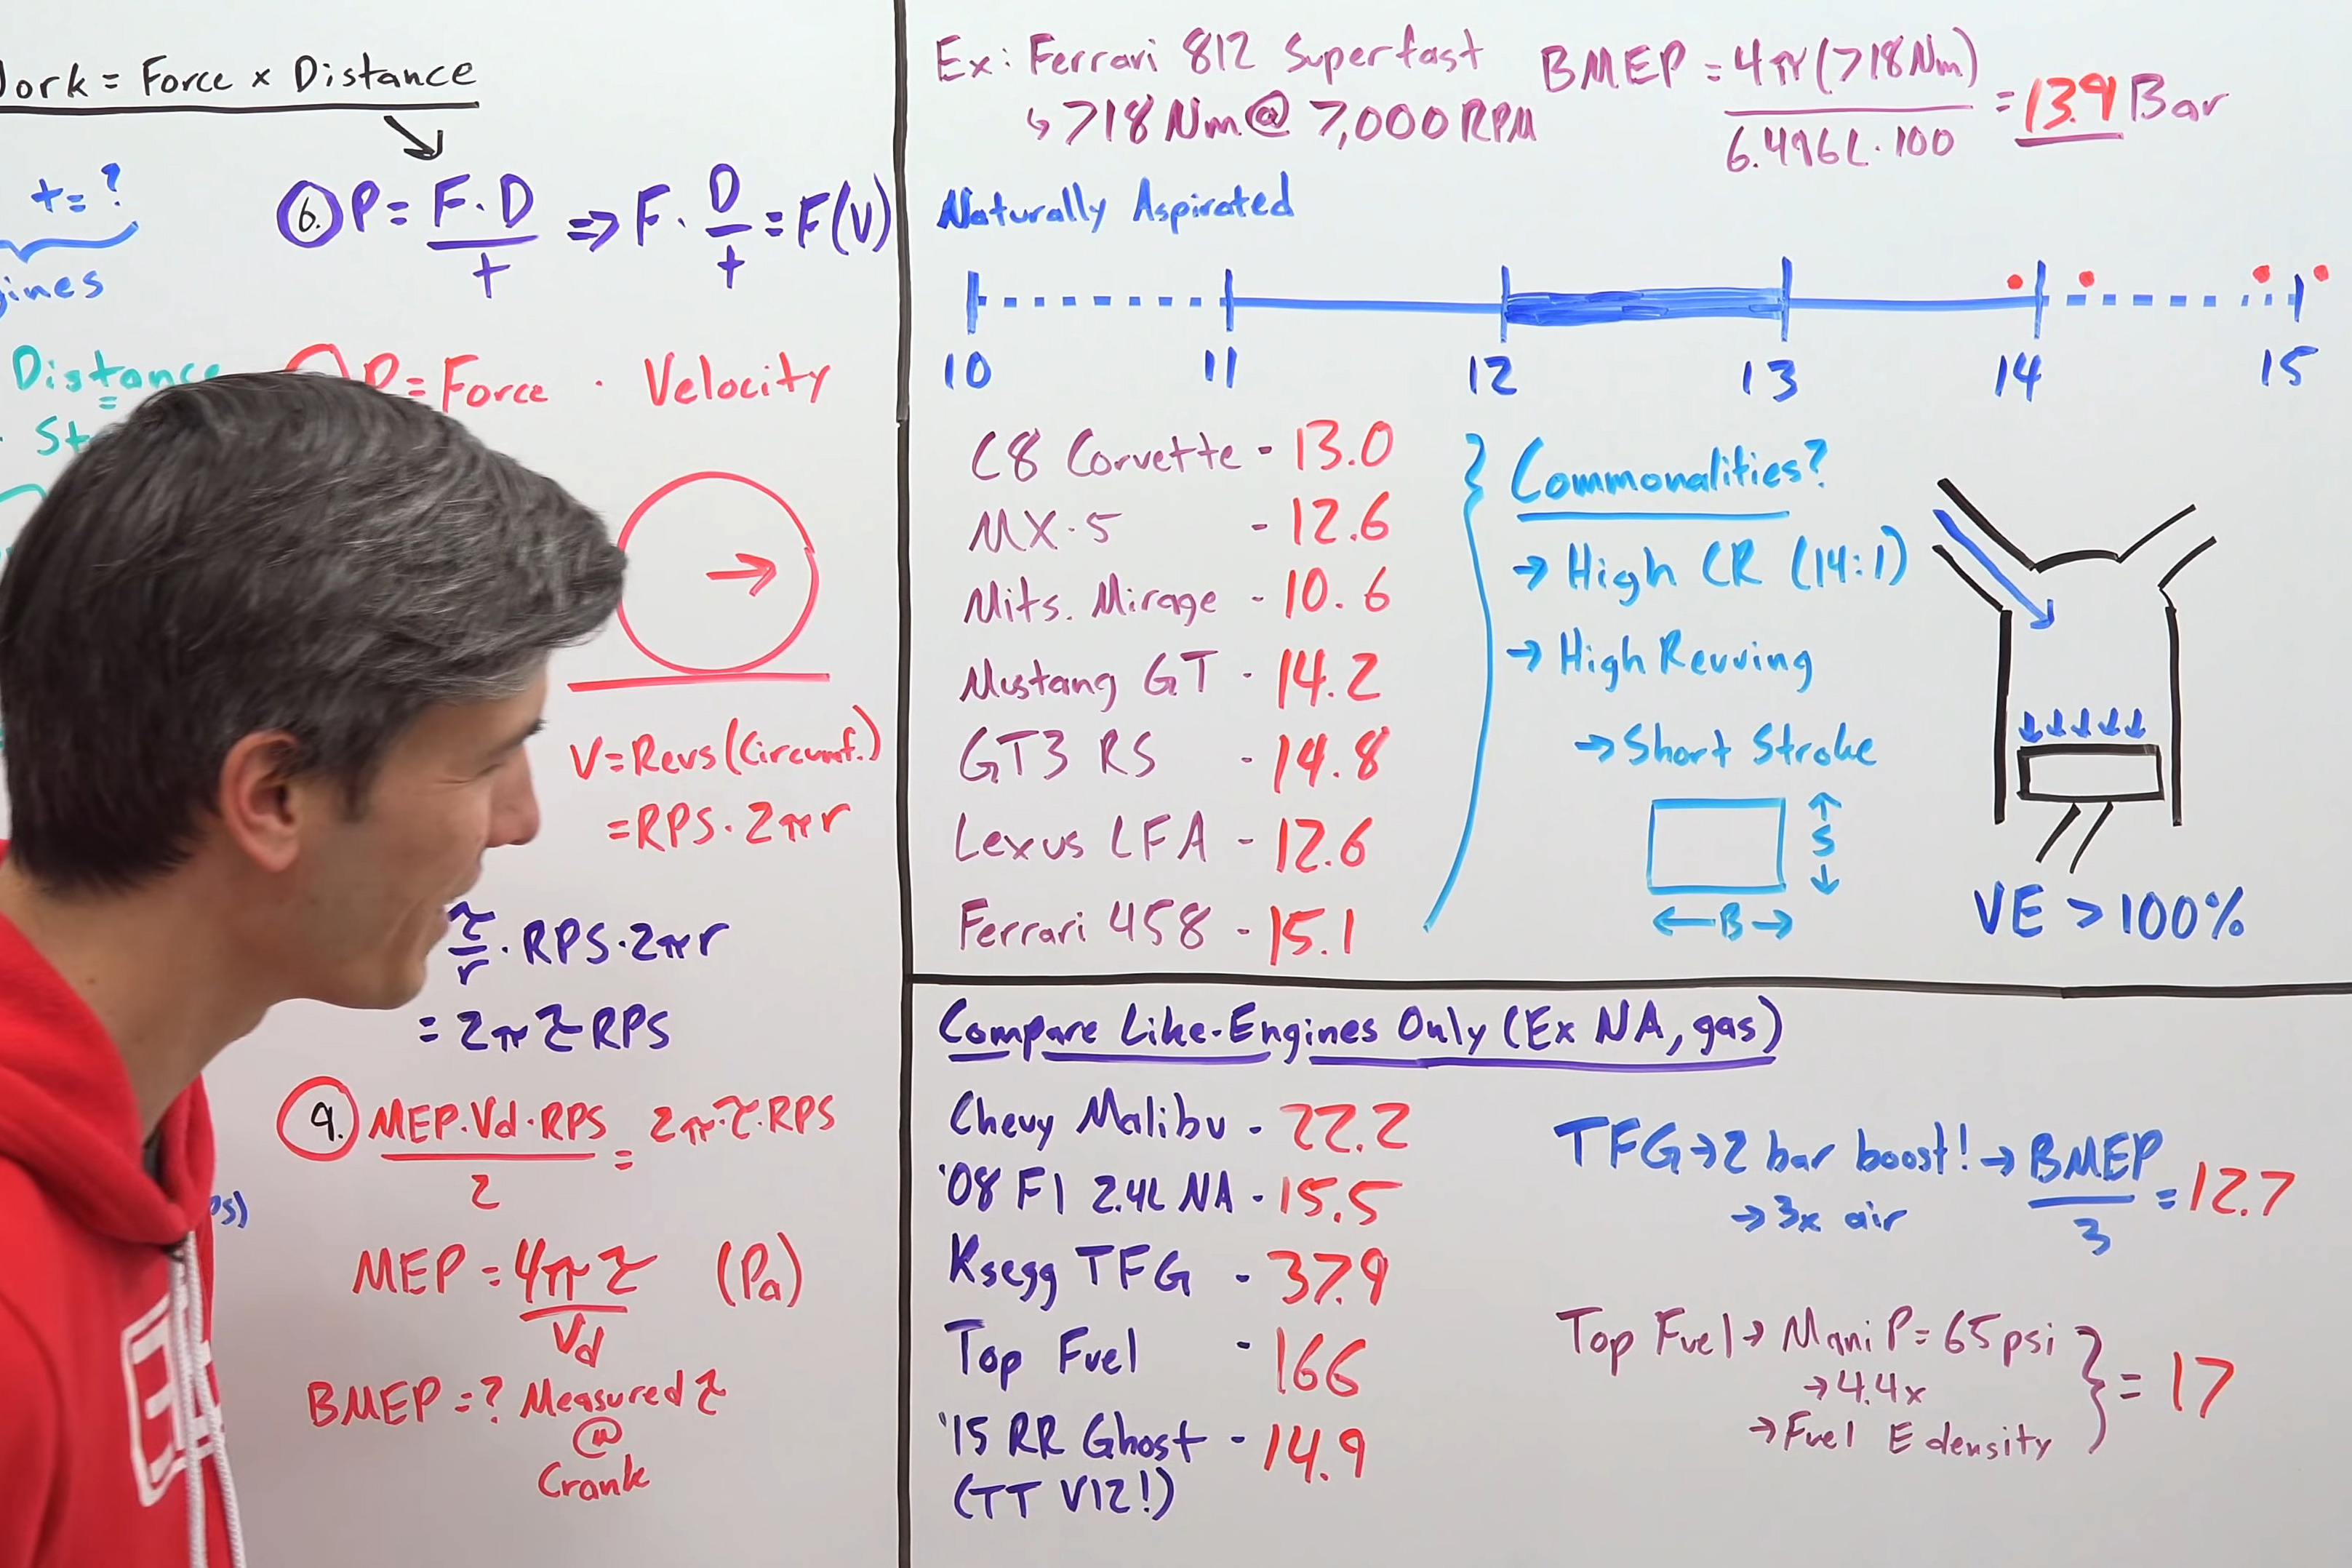 ork = Force x Distance
t = ?
gines
6. P = F·D / t => F · D / t = F(V)
Distance
P = Force · Velocity
V = Revs (Circumf.)
= RPS · 2πr
τ / r · RPS · 2πr
= 2π τ RPS
9. MEP·Vd·RPS / 2 = 2π·τ·RPS
MEP = 4π τ / Vd (Pa)
BMEP = ? Measured τ
@
Crank
Ex: Ferrari 812 Superfast
↳ 718 Nm @ 7,000 RPM
BMEP = 4π(718 Nm) / 6.496L·100 = 13.9 Bar
Naturally Aspirated
10 11 12 13 14 15
C8 Corvette - 13.0
MX-5 - 12.6
Mits. Mirage - 10.6
Mustang GT - 14.2
GT3 RS - 14.8
Lexus LFA - 12.6
Ferrari 458 - 15.1
Commonalities?
→ High CR (14:1)
→ High Revving
→ Short Stroke
S
←B→
VE > 100%
Compare Like-Engines Only (Ex NA, gas)
Chevy Malibu - 22.2
'08 F1 2.4L NA - 15.5
Ksegg TFG - 37.9
Top Fuel - 166
'15 RR Ghost - 14.9
(TT V12!)
TFG → 2 bar boost! → BMEP / 3 = 12.7
→ 3x air
Top Fuel → Mani P = 65 psi
→ 4.4x
→ Fuel E density
} = 17